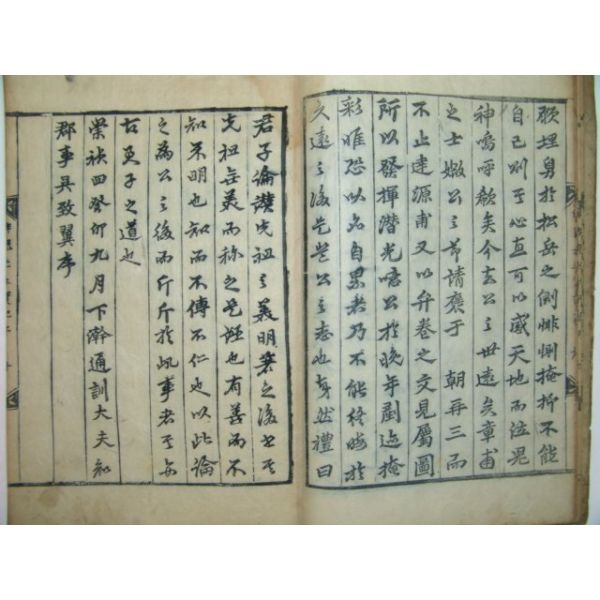 厥埋身於松岳之側悱惻掩抑不能
自已則于心直可以感天地而泣鬼
神嗚呼欷矣今去公之世遠矣章甫
之士媺公之節請褒于 朝再三而
不止逹源甫又以弁卷之文見属圖
所以發揮潜光噫公於晚年剷迹掩
彩唯恐以名自累者乃不能終晦於
久遠之後豈公之志也哉然禮曰
君子論譔先祖之美明著之後世其
先祖無美而称之是誣也有善而不
知不明也知而不傳不仁也以此論
之為公之後而斤斤於此事者其亦
古君子之道也
崇禎四癸卯九月下澣通訓大夫知
郡事吳致翼序